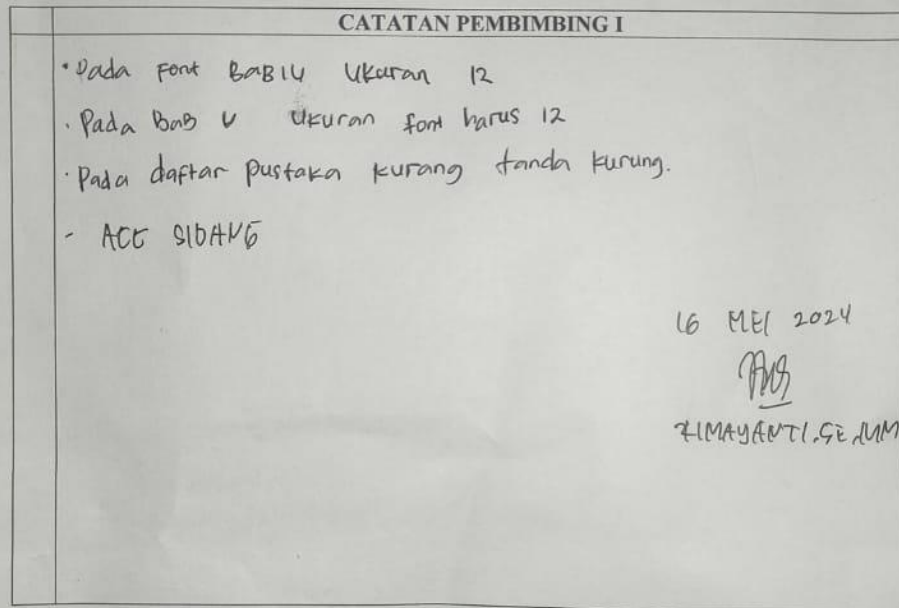 CATATAN PEMBIMBING I
• Pada Font BAB IV Ukuran 12
• Pada Bab V Ukuran font harus 12
• Pada daftar pustaka kurang tanda kurung.
- ACC SIDANG
16 MEI 2024
SE, MM